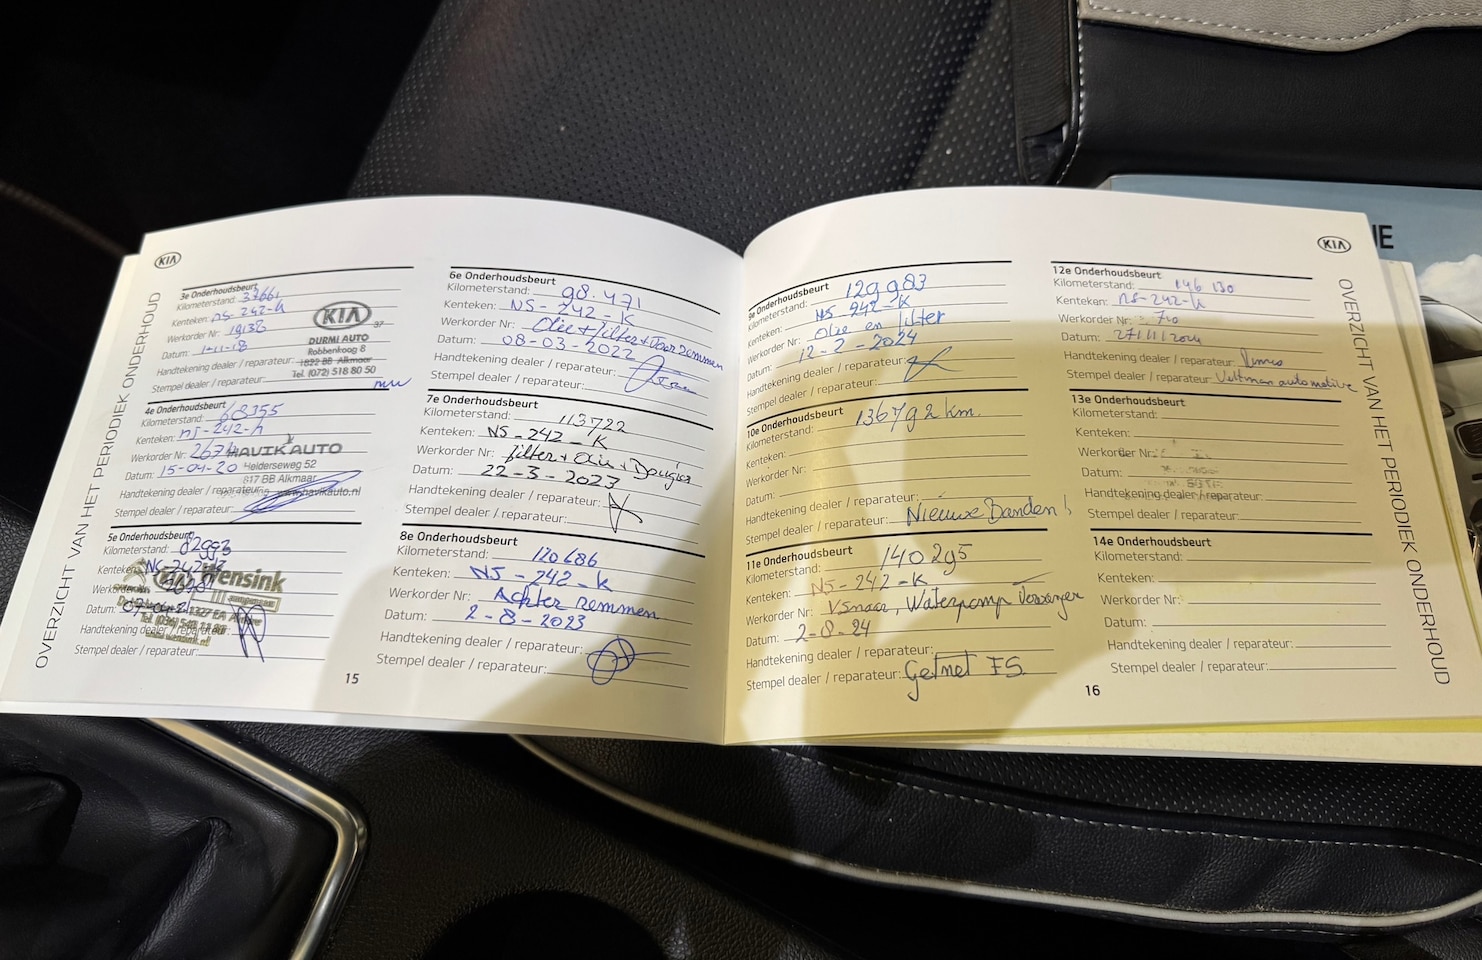 KIA
OVERZICHT VAN HET PERIODIEK ONDERHOUD
3e Onderhoudsbeurt
Kilometerstand: 37661
Kenteken: NS-242-K
Werkorder Nr: 19138
Datum: 1-11-18
Handtekening dealer / reparateur:
Stempel dealer / reparateur:
KIA
DURMI AUTO
Robbenkoog 8
1822 BB Alkmaar
Tel. (072) 518 80 50
4e Onderhoudsbeurt
Kilometerstand: 68355
Kenteken: NS-242-K
Werkorder Nr: 2674
Datum: 15-04-20
Handtekening dealer / reparateur:
Stempel dealer / reparateur:
HAVIK AUTO
Helderseweg 52
817 BB Alkmaar
www.havikauto.nl
5e Onderhoudsbeurt
Kilometerstand: 82993
Kenteken:
Werkorder Nr:
Datum:
Handtekening dealer / reparateur:
Stempel dealer / reparateur:
6e Onderhoudsbeurt
Kilometerstand: 98.471
Kenteken: NS-242-K
Werkorder Nr: Olie + filter + Voor remmen
Datum: 08-03-2022
Handtekening dealer / reparateur:
Stempel dealer / reparateur:
7e Onderhoudsbeurt
Kilometerstand: 113722
Kenteken: NS-242-K
Werkorder Nr: filter + olie + Bougies
Datum: 22-3-2023
Handtekening dealer / reparateur:
Stempel dealer / reparateur:
8e Onderhoudsbeurt
Kilometerstand: 120686
Kenteken: NS-242-K
Werkorder Nr: Achter remmen
Datum: 2-8-2023
Handtekening dealer / reparateur:
Stempel dealer / reparateur:
15
9e Onderhoudsbeurt
Kilometerstand: 129983
Kenteken: NS 242-K
Werkorder Nr: Olie en filter
Datum: 12-2-2024
Handtekening dealer / reparateur:
Stempel dealer / reparateur:
10e Onderhoudsbeurt
Kilometerstand: 136792 km.
Kenteken:
Werkorder Nr:
Datum:
Handtekening dealer / reparateur:
Stempel dealer / reparateur: Nieuwe Banden!
11e Onderhoudsbeurt
Kilometerstand: 140295
Kenteken: NS-242-K
Werkorder Nr: VSnaar, Waterpomp Vervangen
Datum: 2-8-24
Handtekening dealer / reparateur:
Stempel dealer / reparateur:
16
KIA
OVERZICHT VAN HET PERIODIEK ONDERHOUD
12e Onderhoudsbeurt
Kilometerstand: 146 130
Kenteken: NS-242-K
Werkorder Nr:
Datum: 27/11/2024
Handtekening dealer / reparateur:
Stempel dealer / reparateur: Veltman automotive
13e Onderhoudsbeurt
Kilometerstand:
Kenteken:
Werkorder Nr:
Datum:
Handtekening dealer / reparateur:
Stempel dealer / reparateur:
14e Onderhoudsbeurt
Kilometerstand:
Kenteken:
Werkorder Nr:
Datum:
Handtekening dealer / reparateur:
Stempel dealer / reparateur: